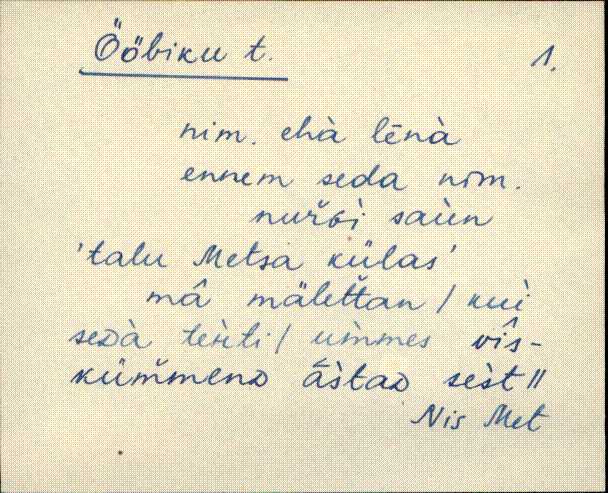 Ööbiku t. 1.
nim. ehà lēnà
ennem seda nim.
nuřbì saùn
'talu Metsa külas'
mâ mäletťan / kuì
seDà teìťi / uìmmes vîs-
küm̆menD āstaD seìst //
Nis Met